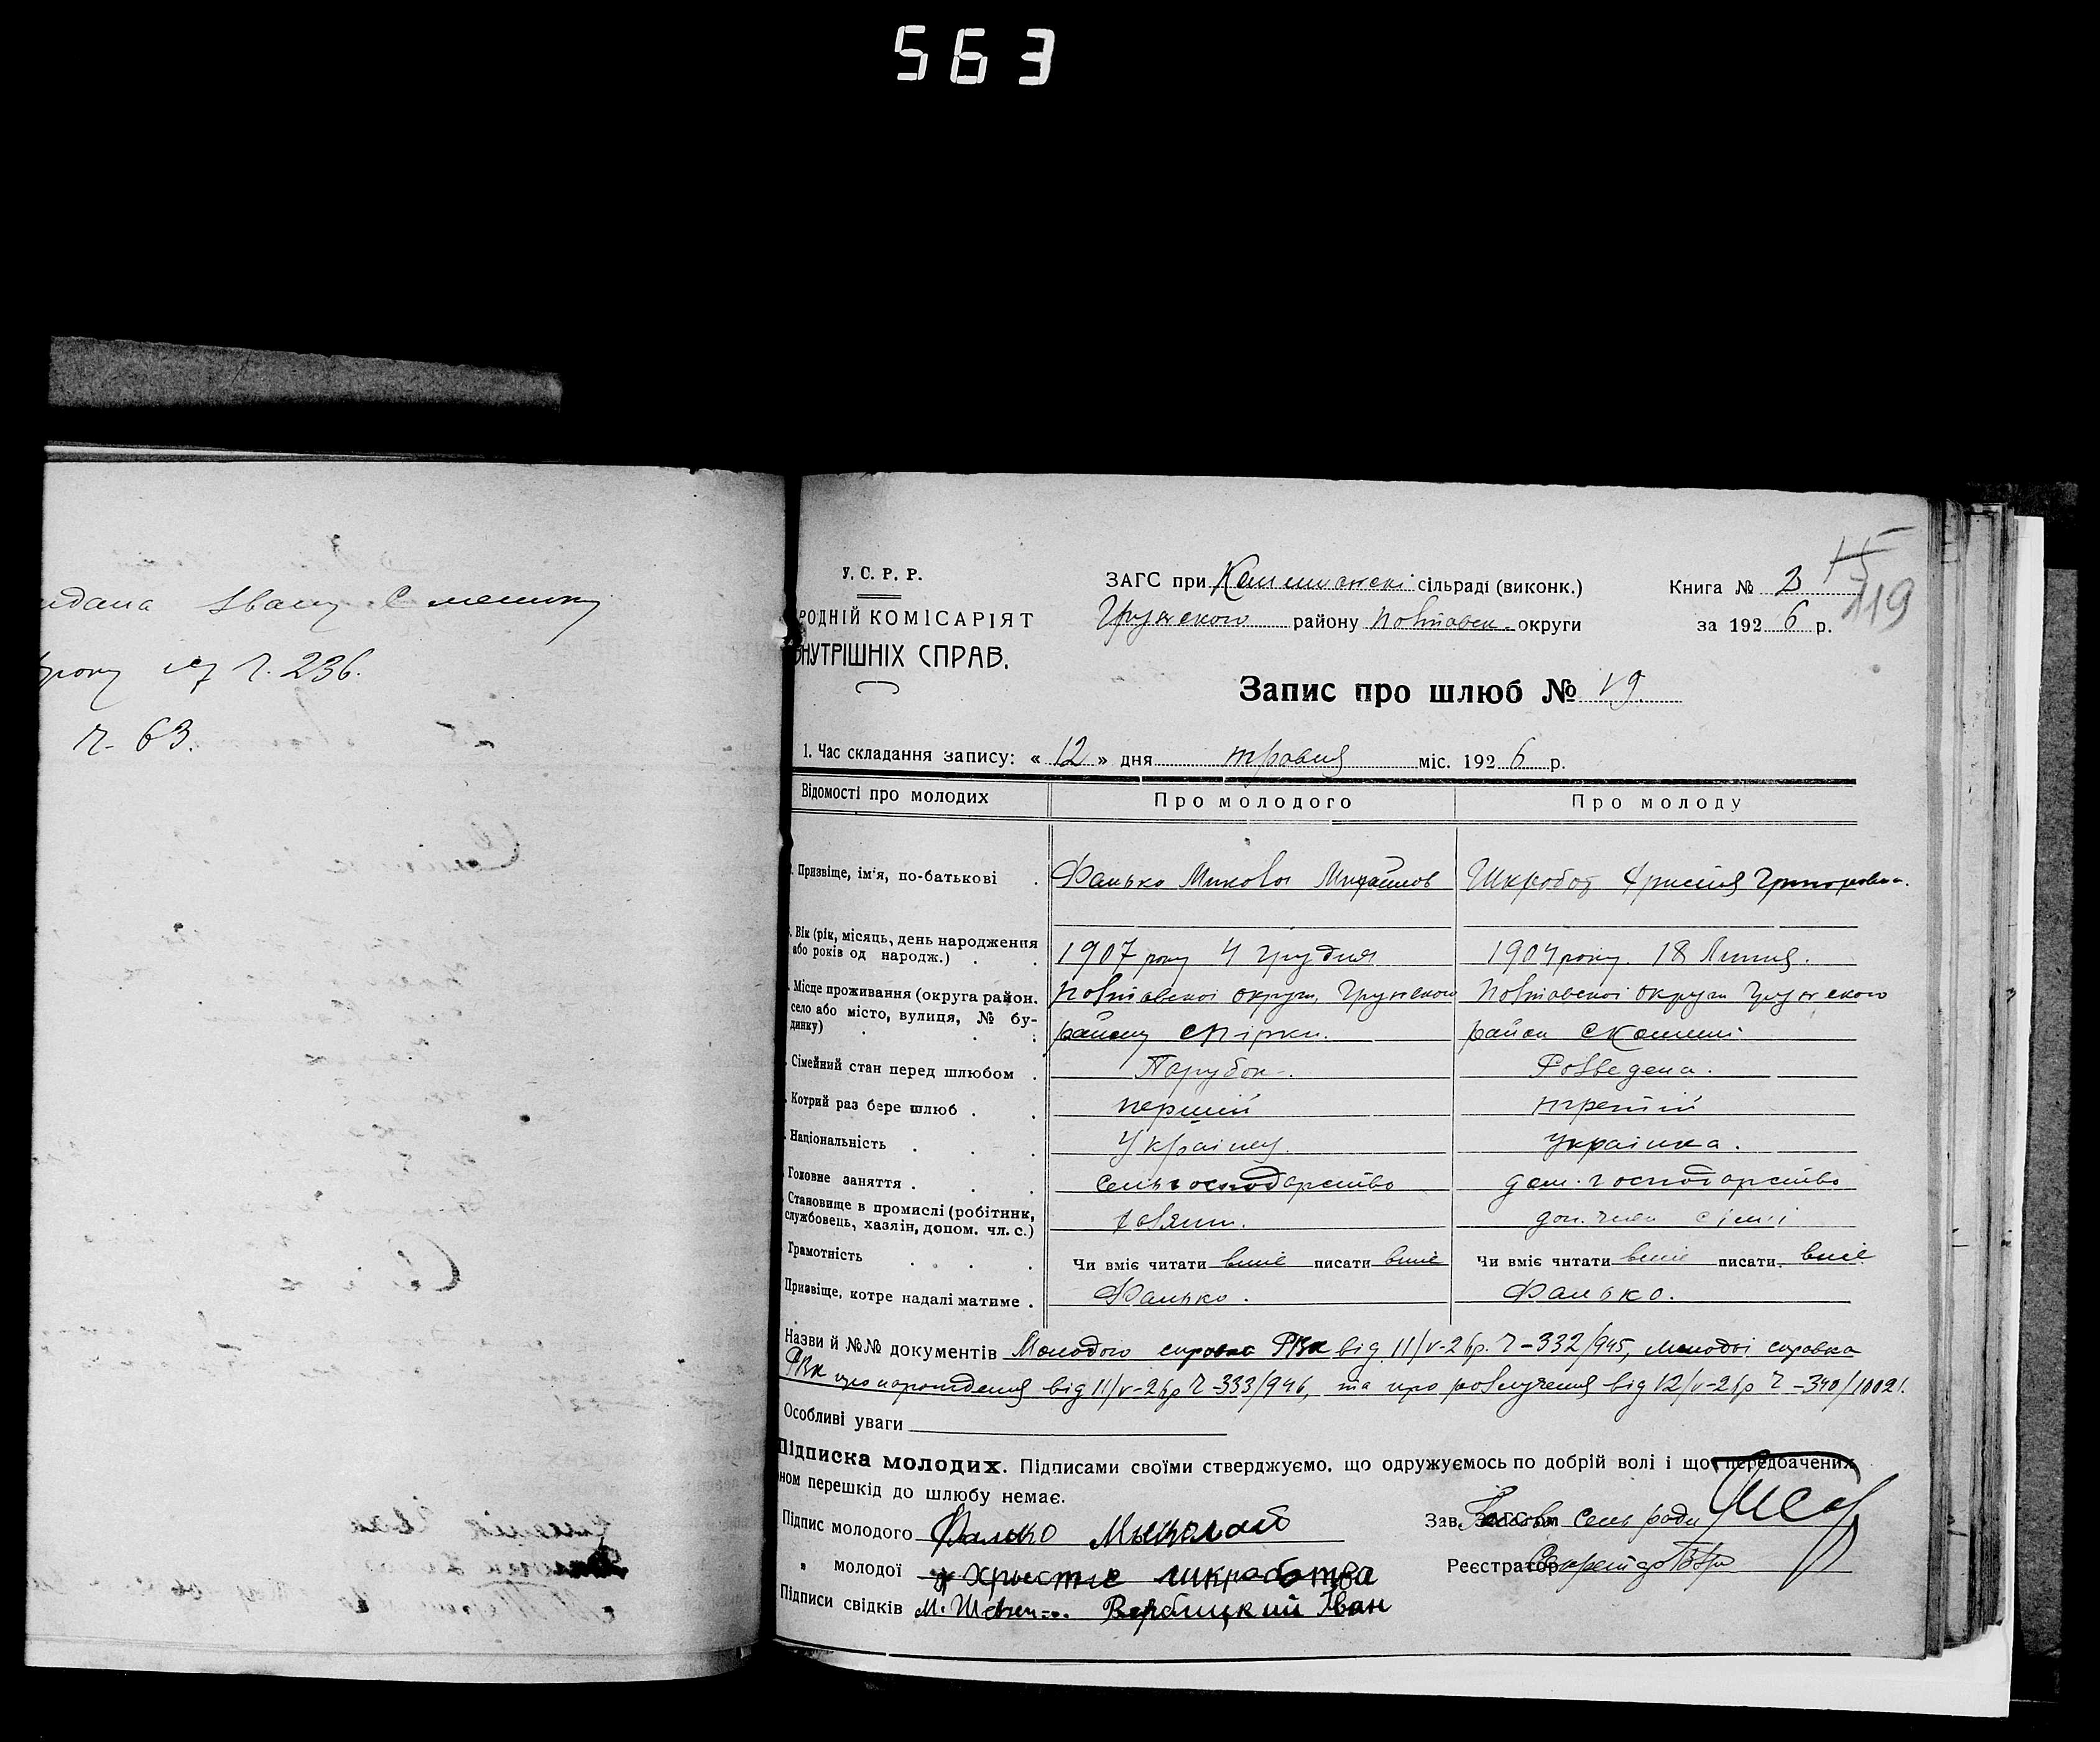 563
Івану С
року 17 Ч. 236.
Ч. 63.
У. С. Р. Р.
РОДНІЙ КОМІСАРІЯТ
ВНУТРІШНІХ СПРАВ.
ЗАГС при сільраді (виконк.)
Грунського району Полтавськ. округи
Книга № 2
за 1926 р.
119
Запис про шлюб № 19.
1. Час складання запису: « 12 » дня травня міс. 1926 р.
Відомості про молодих Про молодого Про молоду
Призвіще, ім'я, по-батькові . Фалько Микола Михайлов Шкробот Христя Григоровна.
Вік (рік, місяць, день народження
або років од народж.) . . 1907 року 4 грудня 1904 року 18 Липня.
Місце проживання (округа район, Полтавської округи, Грунського Полтавської округи Грунського
село або місто, вулиця, № бу-
динку) . : району с Пірки. район с
Сімейний стан перед шлюбом . Парубок. Розведена.
Котрий раз бере шлюб . . перший третій
Національність . . . Українец українка.
Головне заняття . . . сельгосподарство дом. господарство
Становище в промислі (робітник,
службовець, хазяін, допом. чл. с.) хазяин. доп. член сімї
Грамотність . . . . Чи вміє читати вміє писати вміє Чи вміє читати вміє писати. вміє
Призвіще, котре надалі матиме . Фалько. Фалько.
Назви й №№ документів Молодого справка РВК від 11/V-26р. Ч-332/945, молодої справка
РВК про народження від 11/V-26р Ч-333/946, та про розлучення від 12/V-26р Ч-340/10021.
Особливі уваги
Підписка молодих. Підписами своїми стверджуємо, що одружуємось по добрій волі і що передбачених
ном перешкід до шлюбу немає.
Підпис молодого Фалько Мыколай
„ молодої Христе шкработва
Підписи свідків М. Вербицкий Іван
Зав. ЗАГС'ом Голова сельради
Реєстратор